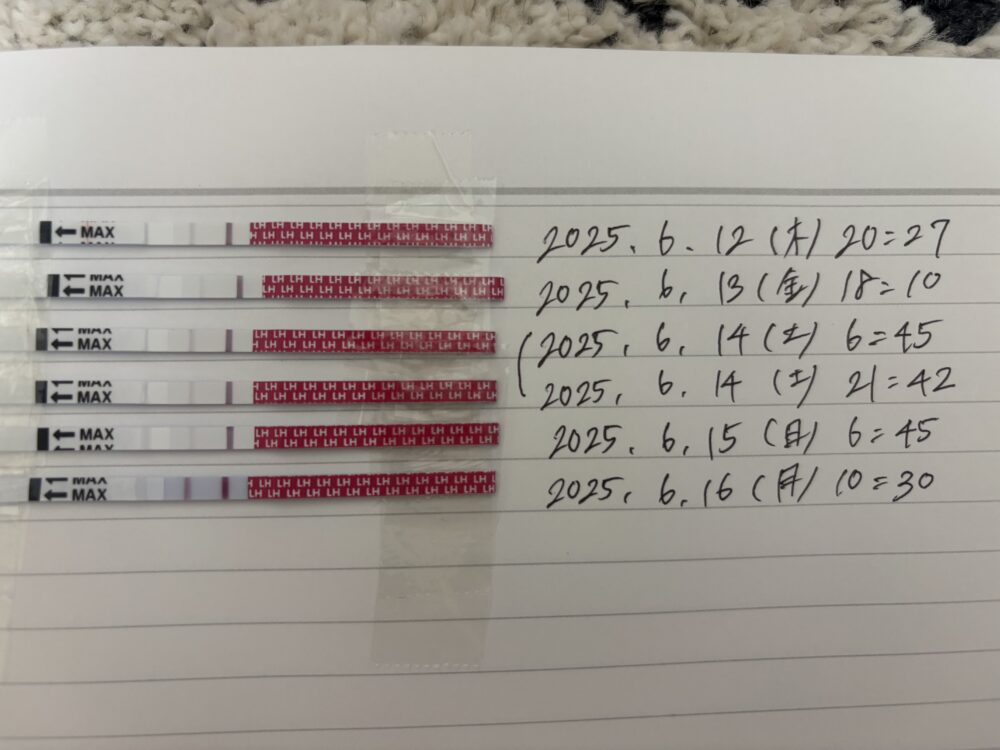 ← MAX LH LH LH LH LH LH LH LH LH LH LH LH 2025. 6. 12 (木) 20=27
← MAX LH LH LH LH LH LH LH LH LH LH LH LH 2025. 6. 13 (金) 18=10
← MAX LH LH LH LH LH LH LH LH LH LH LH LH 2025. 6. 14 (土) 6=45
← MAX LH LH LH LH LH LH LH LH LH LH LH LH 2025. 6. 14 (土) 21=42
← MAX LH LH LH LH LH LH LH LH LH LH LH LH 2025. 6. 15 (日) 6=45
← MAX LH LH LH LH LH LH LH LH LH LH LH LH 2025. 6. 16 (月) 10=30